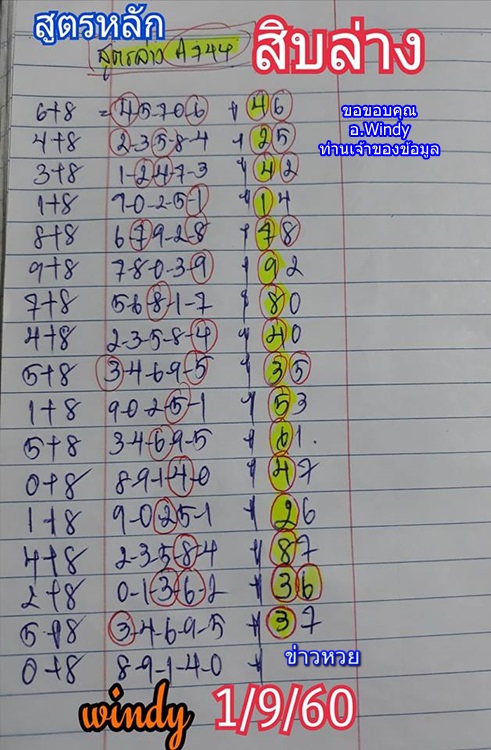 สูตรหลัก
สิบล่าง
สูตรล่าง A744
ขอขอบคุณ
อ.Windy
ท่านเจ้าของข้อมูล
6+8 = 4-5-7-0-6 * 46
4+8 2-3-5-8-4 * 25
3+8 1-2-4-7-3 * 42
1+8 9-0-2-5-1 * 14
8+8 6-7-9-2-8 * 78
9+8 7-8-0-3-9 * 92
7+8 5-6-8-1-7 * 80
4+8 2-3-5-8-4 * 40
5+8 3-4-6-9-5 * 35
1+8 9-0-2-5-1 * 53
5+8 3-4-6-9-5 * 61.
0+8 8-9-1-4-0 * 47
1+8 9-0-2-5-1 * 26
4+8 2-3-5-8-4 * 87
2+8 0-1-3-6-2 * 36
5+8 3-4-6-9-5 * 37
0+8 8-9-1-4-0 *
ข่าวหวย
windy 1/9/60